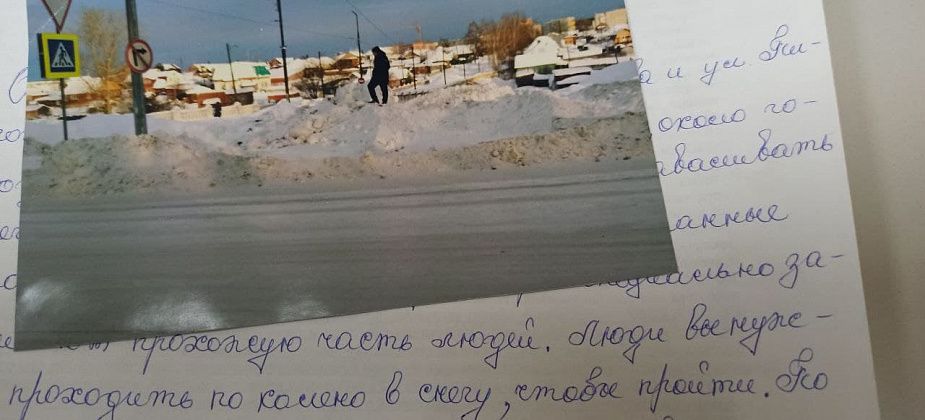 и ул. Пи-
около го-
вашивать
анные
циально за-
прохожую часть людей. Люди вынуж-
проходить по колено в снегу, чтобы пройти. По